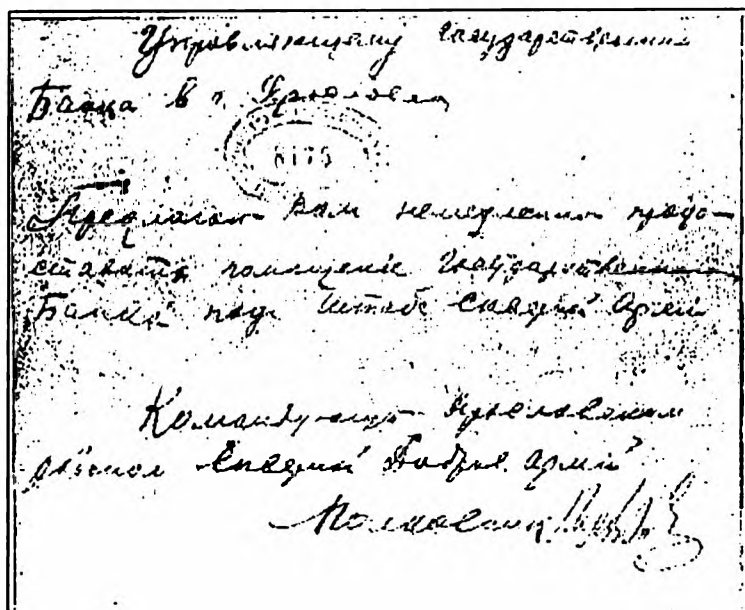 Управляющему Государственнаго
Банка в г. Ярославле
8175
Предлагаю Вам немедленно предо-
ставить помещение Государственнаго
Банка под Штаб Северной Армии
Командующий Ярославским
районом Северной Добров. Армии
Полковник